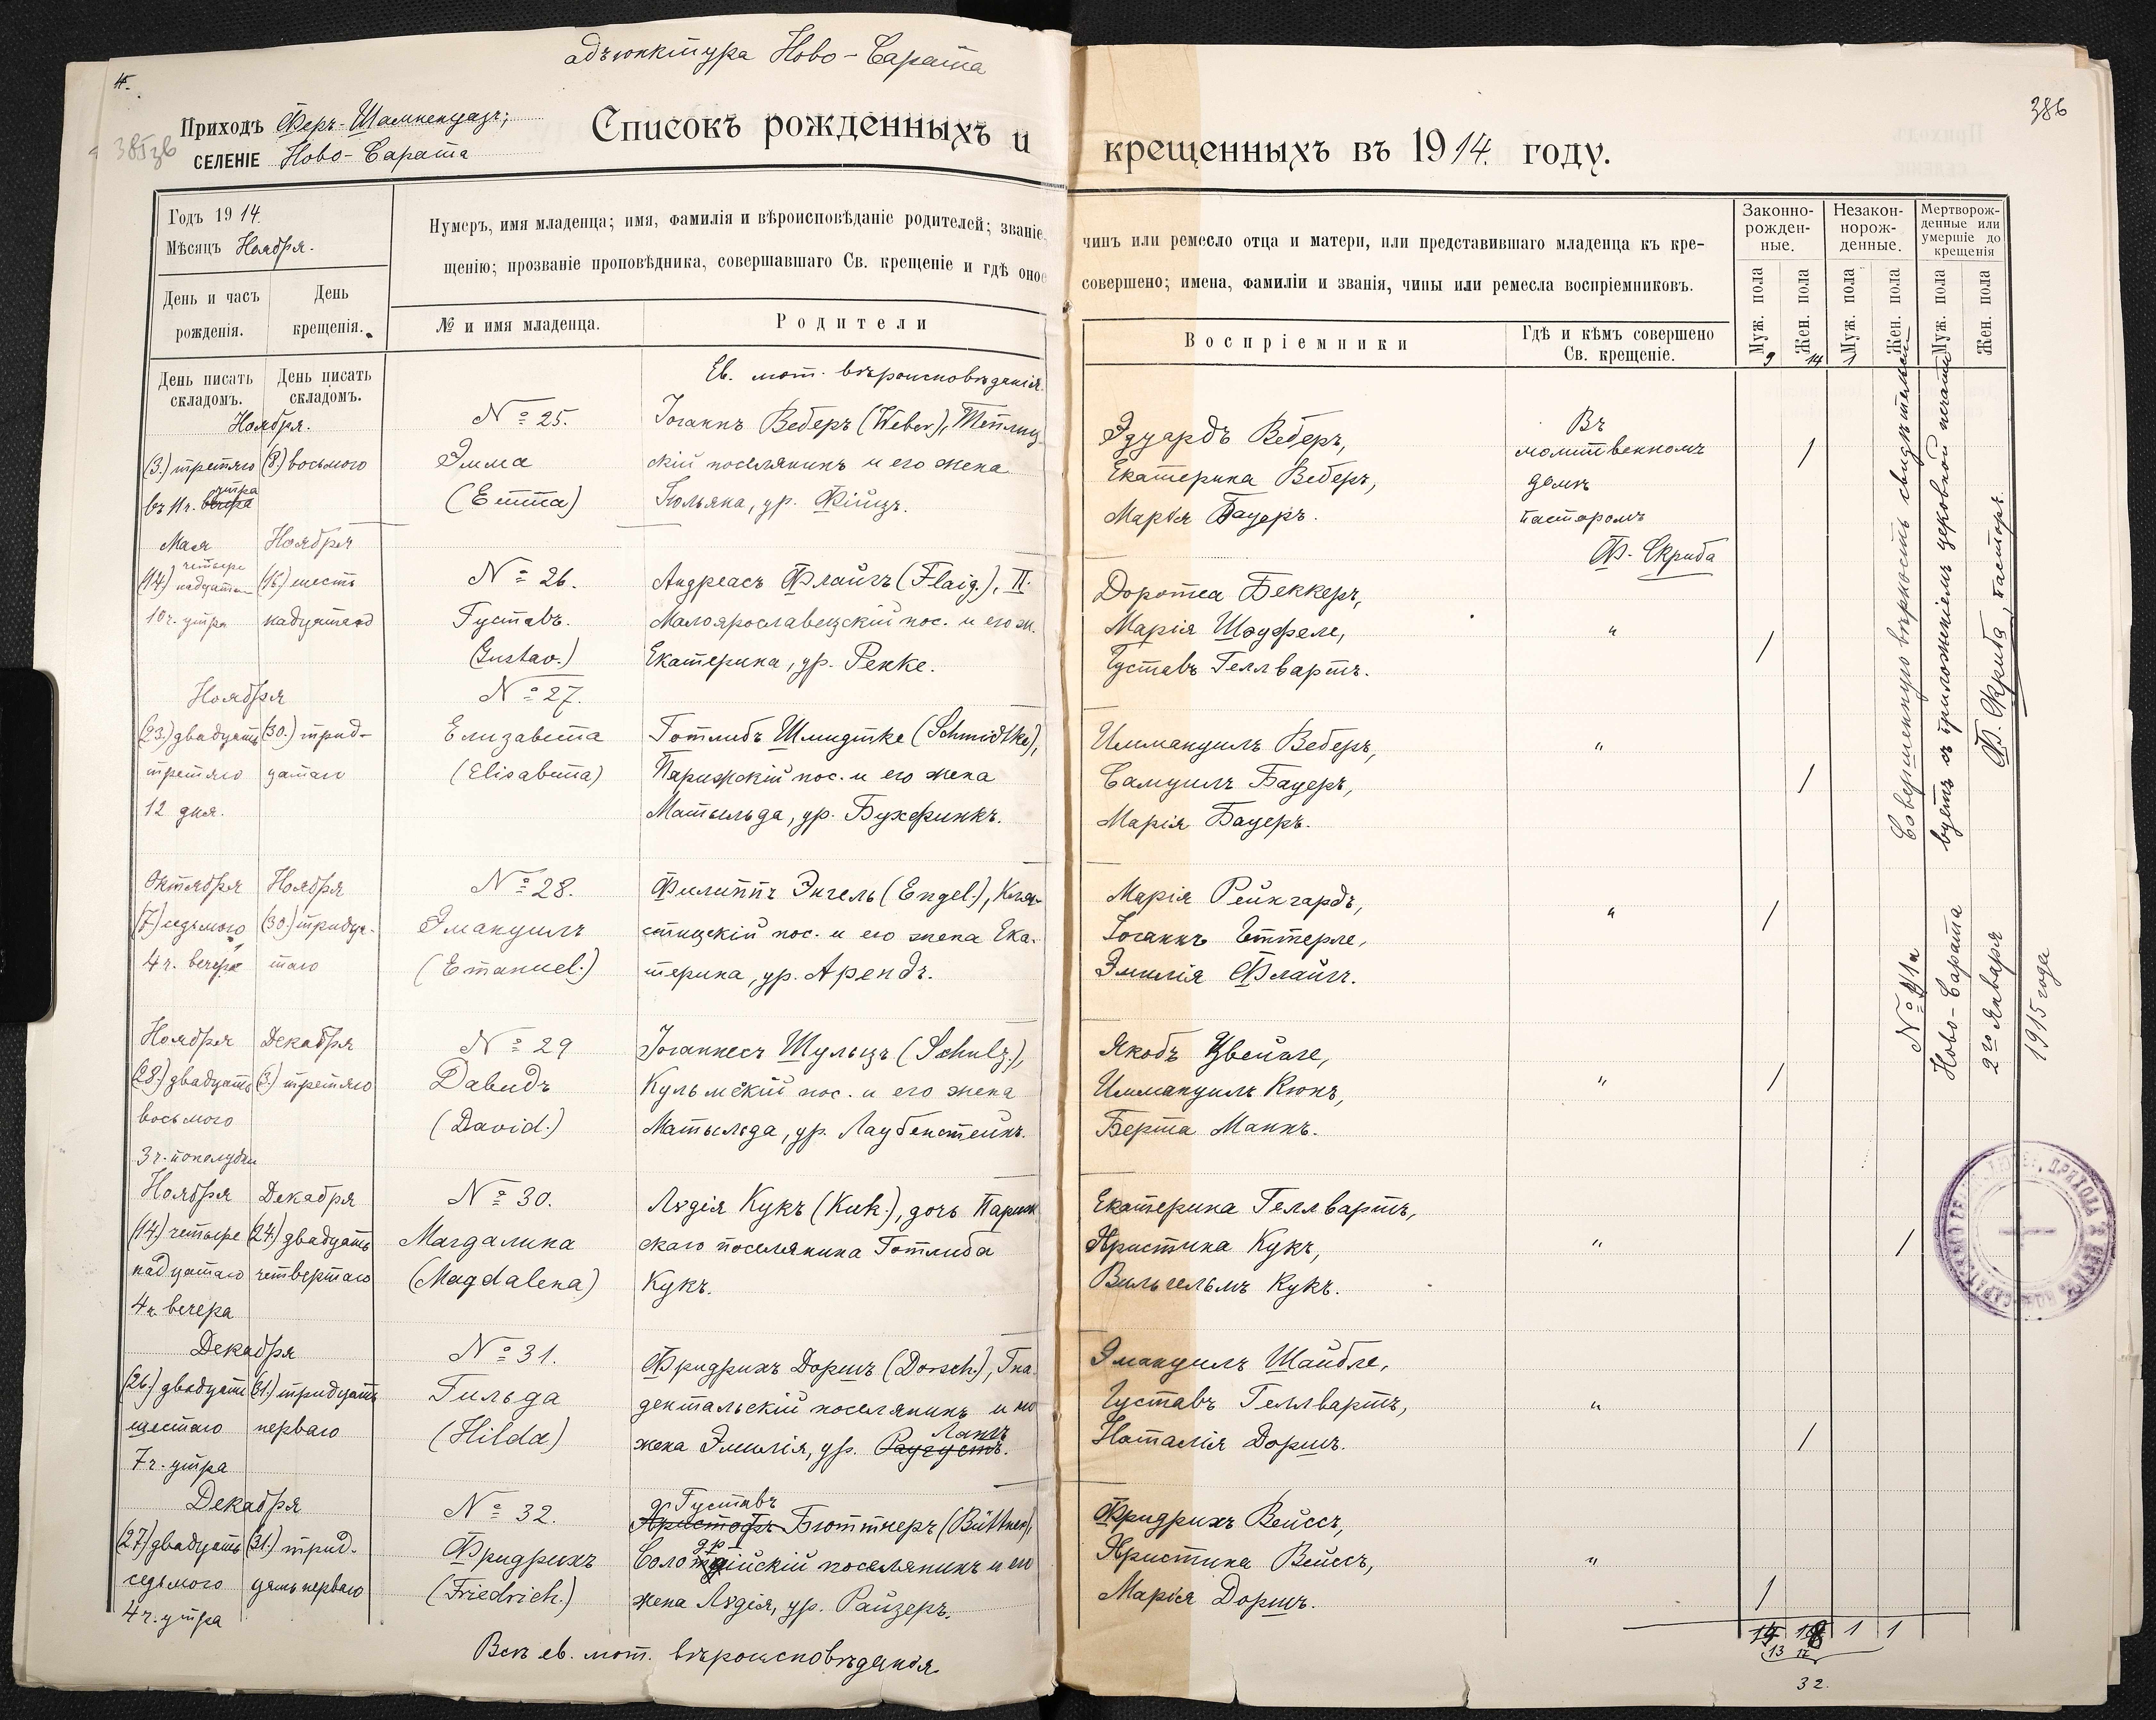 адъюнктура Ново-Сарата
4.
386
Приходъ Феръ-Шампенуазъ;
селеніе Ново-Сарата
Списокъ рожденныхъ и крещенныхъ въ 1914. году.
Годъ 1914.
Мѣсяцъ Ноября.
Нумеръ, имя младенца; имя, фамилія и вѣроисповѣданіе родителей; званіе, чинъ или ремесло отца и матери, или представившаго младенца къ кре-
щенію; прозваніе проповѣдника, совершавшаго Св. крещеніе и гдѣ оное совершено; имена, фамиліи и званія, чины или ремесла воспріемниковъ.
День и часъ рожденія.
День крещенія.
№ и имя младенца.
Родители
Воспріемники
Гдѣ и кѣмъ совершено Св. крещеніе.
Законно-рожден-ные.
Незакон-норож-денные.
Мертворож-денные или умершіе до крещенія
Муж. пола
Жен. пола
Муж. пола
Жен. пола
Муж. пола
Жен. пола
9 14 1
День писать складомъ.
День писать складомъ.
Ев. лют. вѣроисповѣданія.
Ноября.
(3.) третяго
въ 11 ч. вечера утра
(8.) восьмого
№ 25.
Эмма
(Emma)
Іоганнъ Веберъ (Weber), Теплиц
скій поселянинъ и его жена
Юльяна, ур. Фійцъ.
Эдуардъ Веберъ,
Екатерина Веберъ,
Марія Бауеръ.
Въ
молитвенномъ
домѣ
пасторомъ
Ф. Скриба
/
Мая
(14.) четыре
надцатаго
10 ч. утра
Ноября
(16.) шесть
надцатаго
№ 26.
Густавъ.
(Gustav.)
Андреасъ Флайгъ (Flaig.), II.
Малоярославецскій пос. и его ж.
Екатерина, ур. Ренке.
Доротеа Беккеръ,
Марія Шауфеле,
Густавъ Геллвартъ.
"
/
Ноября
(23.) двадцать
третяго
12 дня.
(30.) трид-
цатаго
№ 27.
Елизавета
(Elisabetta)
Готлибъ Шмидтке (Schmidtke),
Парижскій пос. и его жена
Матыльда, ур. Бухфинкъ.
Иммануилъ Веберъ,
Самуилъ Бауеръ,
Марія Бауеръ.
"
/
Октября
(7.) седьмого
4 ч. вечера
Ноября
(30.) тридца-
таго
№ 28.
Эмануилъ
(Emanuel.)
Филиппъ Энгель (Engel.), Кля-
стицскій пос. и его жена Ека-
терина, ур. Арендъ.
Марія Рейнгардъ,
Іоганнъ Еттерле,
Эмилія Флайгъ.
"
/
Ноября
(28.) двадцать
восьмого
3 ч. пополудни
Декабря
(3.) третяго
№ 29
Давидъ
(David.)
Іоганнесъ Шульцъ (Schulz.),
Кульмскій пос. и его жена
Матыльда, ур. Лаубенстейнъ.
Якобъ Цвейгле,
Иммануилъ Кюнъ,
Берта Маннъ.
"
/
Ноября
(14.) четыре
надцатаго
4 ч. вечера
Декабря
(24.) двадцать
четвертаго
№ 30.
Магдалина
(Magdalena)
Лидія Кукъ (Kuk.), дочь Париж
скаго поселянина Готлиба
Кукъ.
Екатерина Геллвартъ,
Христина Кукъ,
Вильгельмъ Кукъ.
"
/
Декабря
(26.) двадцать
шестаго
7 ч. утра
(31.) тридцать
перваго
№ 31.
Гильда
(Hilda)
Фридрихъ Доршъ (Dorsch.), Гна
дентальскій поселянинъ и его
жена Эмилія, ур. Раугустъ. Лангъ
Эмануилъ Шайбле,
Густавъ Геллвартъ,
Наталія Доршъ.
"
/
Декабря
(27.) двадцать
седьмого
4 ч. утра
(31.) трид-
цать перваго
№ 32.
Фридрихъ
(Friedrich.)
Густавъ
Христофъ Бюттнеръ (Büttner),
поселянинъ и его
жена Лидія, ур. Райзеръ.
Фридрихъ Вейссъ,
Христина Вейссъ,
Марія Доршъ.
"
/
Всѣ ев. лют. вѣроисповѣданія.
1 1
13
32.
Совершенную вѣрность свидѣтельст
вуетъ съ приложеніемъ церковной печати
Ф. Скриба, пасторъ.
Ново-Сарата
2го Января
1915 года